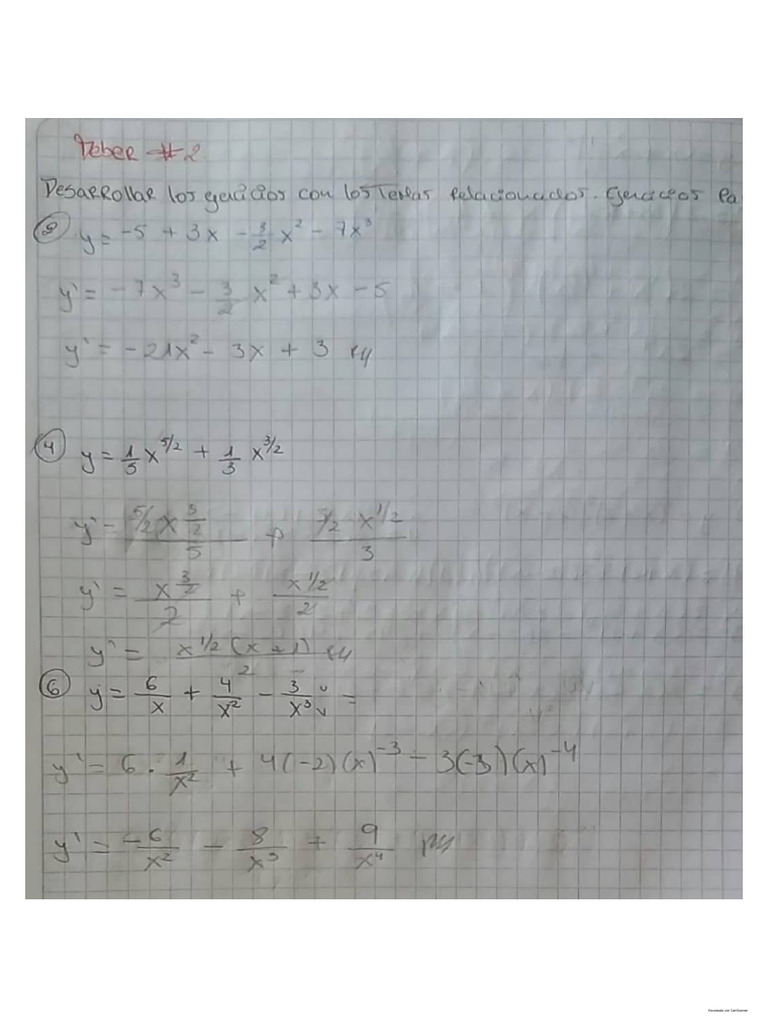 Deber #2
Desarrollar los ejercicios con los Temas relacionados. Ejercicios Pa
2 y = -5 + 3x - 3/2 x² - 7x³
y' = -7x³ - 3/2 x² + 3x - 5
y' = -21x² - 3x + 3 R//
4 y = 1/5 x^5/2 + 1/3 x^3/2
y' = 5/2 x^3/2 / 5 + 3/2 x^1/2 / 3
y' = x^3/2 / 2 + x^1/2 / 2
y' = x^1/2 (x + 1) / 2 R//
6 y = 6/x + 4/x² - 3/x³ =
y' = 6 · 1/x² + 4(-2)(x)^-3 - 3(-3)(x)^-4
y' = -6/x² - 8/x³ + 9/x⁴ R//